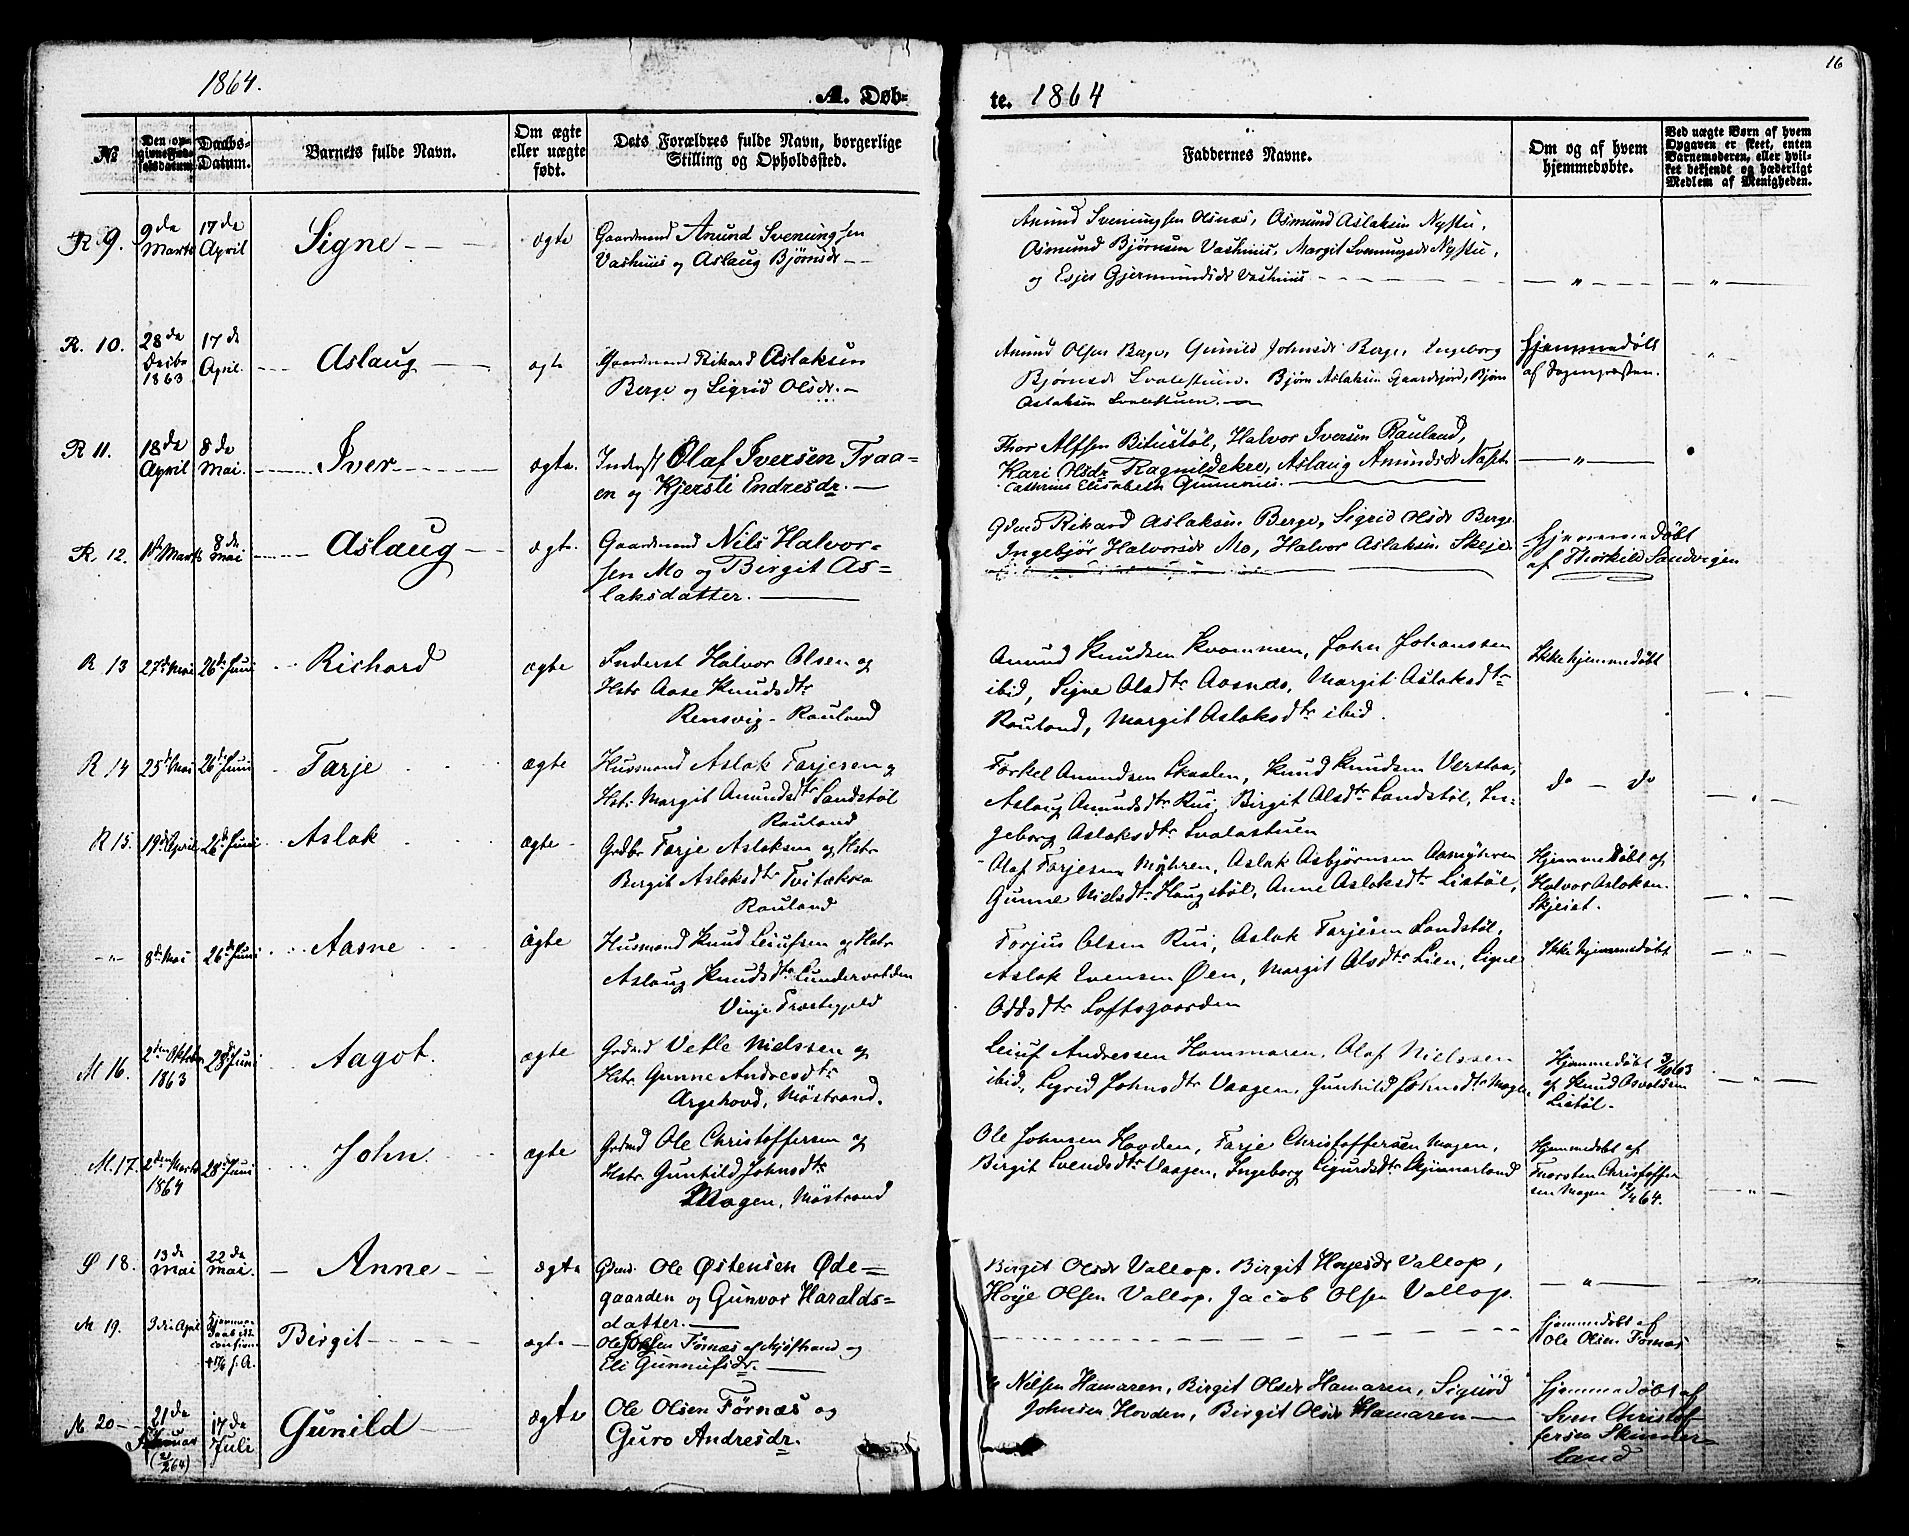 16
1864.
A. Døb-
te. 1864
№
Den op-
givne Fød-
selsdatum.
Daabs-
Datum.
Barnets fulde Navn.
Om ægte
eller uægte
født.
Dets Forældres fulde Navn, borgerlige
Stilling og Opholdssted.
Faddernes Navne.
Om og af hvem
hjemmedøbte.
Ved uægte Børn af hvem
Opgaven er skeet, enten
Barnemoderen, eller hvil-
ket bekjendt og hæderligt
Medlem af Menigheden.
R. 9.
9de
Marts
17de
April
Signe
ægte
Gaardmand Anund Svenungsen
Vashuus og Aslaug Bjørnsdr
Anund Sveningsen Olsnæs, Osmund Aslaksen Nystu,
Osmund Bjørnsen Vashuus, Margit Svenungsdr Nystu,
og Gjermundsdr Vashuus
R. 10.
28de
Decbr
1863
17de
April.
Aslaug
ægte
Gaardmand Rikard Aslaksen
Berge og Sigrid Olsdr.
Anund Olsen Berge, Gunild Johnsdr Berge, Ingeborg
Bjørnsdr Svalestuen. Bjørn Aslaksen Gaardsjord, Bjørn
Aslaksen Svalestuen.
Hjemmedøbt
af
R 11.
18de
April
8de
Mai.
Iver
ægte.
Inderst Olaf Iversen Traa-
en og Kjersti Endresdr.
Thor Alfsen Bitustøl, Halvor Iversen Rauland,
Kari Olsdr Ragnildekre, Aslaug Amundsdr Næset
Cathrine Elisabeth
R. 12.
Marts
8de
Mai
Aslaug
ægte.
Gaardmand Nils Halvor-
sen Mo og Birgit As-
laksdatter.
Gdmd Rikard Aslaksen Berge, Sigrid Olsdr Berge
Ingebjør Halvorsdr Mo, Halvor Aslaksen Skeje
Hjemmedøbt
af Thorkild Sandvigen
R 13
27de Mai
26de Juni
Richard
ægte
Inderst Halvor Olsen og
Hstr Aase Knudsdtr
Rensvig - Rauland
Amund Knudsen Kvammen, John Johanssen
ibid, Signe Olsdtr Aasnæs, Margit Aslaksdtr
Rauland, Margit Aslaksdtr ibid.
Ikke hjemmedøbt
R 14
25de Mai
26de Juni
Tarje
ægte
Husmand Aslak Tarjesen og
Hstr Margit Amundsdtr Sandstøl
Rauland
Torkel Amundsen Skaalen, Knud Knudsen Verstaa,
Aslaug Amundsdtr Rui, Birgit Olsdtr Sandstøl, In-
geborg Aslaksdtr Svalastuen
do - do
R 15.
19de April
26de Juni
Aslak
ægte
Grdbr Tarje Aslaksen og Hstr
Bergit Aslaksdtr Tvitækka
Rauland
Olaf Tarjesen Møhren, Aslak Asbjørnsen Aamøhren
Gunne Nielsdtr Haugstøl, Anne Aslaksdtr Listøl,
Hjemmedøbt af
Halvor Aslaksn.
Skjeiet.
- " -
8de Mai
26de Juni
Aasne
ægte
Husmand Knud Leiufsen og Hstr
Aslaug Knudsdtr Lundervolden
Vinje Præstegjeld
Torjus Olsen Rui, Aslak Tarjesen Sandstøl,
Aslak Evensen Øen, Margit Olsdtr Lien, Signe
Oddsdtr Loftsgaarden
Ikke hjemmedøbt
M 16.
2den Oktober
1863
28de Juni
Aagot.
ægte
Grdmd Vetle Nielssen og
Hstr Gunne Andresdtr
Argehovd, Møstrand.
Leiuf Andressen Hammaren, Olaf Nielssen
ibid, Sigrid Johnsdtr Vaagen, Gunhild Johnsdtr Mogen
Hjemmedøbt
af Knud Asvoldsen
Listøl.
M. 17.
2den Marts
1864
28de Juni
John
ægte
Grdmd Ole Christoffersen og
Hstr. Gunhild Johnsdtr
Mogen, Møstrand
Ole Johnsen Hovden, Tarje Christoffersen Mogen,
Birgit Svendsdtr Vaagen, Ingeborg Sigurdsdtr Skjinnarland
Hjemmedøbt af
Thorsten Christoffer-
sen Mogen 12/4 64.
Ø 18.
13de
Mai
22de
Mai.
Anne
ægte
Gdmd. Ole Østensen Øde-
gaarden og Gunvor Haralds-
datter.
Birgit Olsdr Vallop. Birgit Høyesdr Vallop,
Høye Olsen Vallop. Jacob Olsen Vallop.
M 19.
April
Birgit
ægte
Ole Olsen Førnæs af Mjøstrand og
Eli Gunnufsdr.
Hjemmedøbt af
Ole Olsen Førnæs
M 20
21de
Februar
(2/264)
17de
Juli
Gunild
ægte
Ole Olsen Førnæs og
Guro Andresdr.
Nilsen Hamaren, Birgit Olsdr Hamaren, Sigurd
Johnsen Hovden, Birgit Olsdr Hamaren
Hjemmedøbt af
Sven Christof-
fersen Skinnar-
land